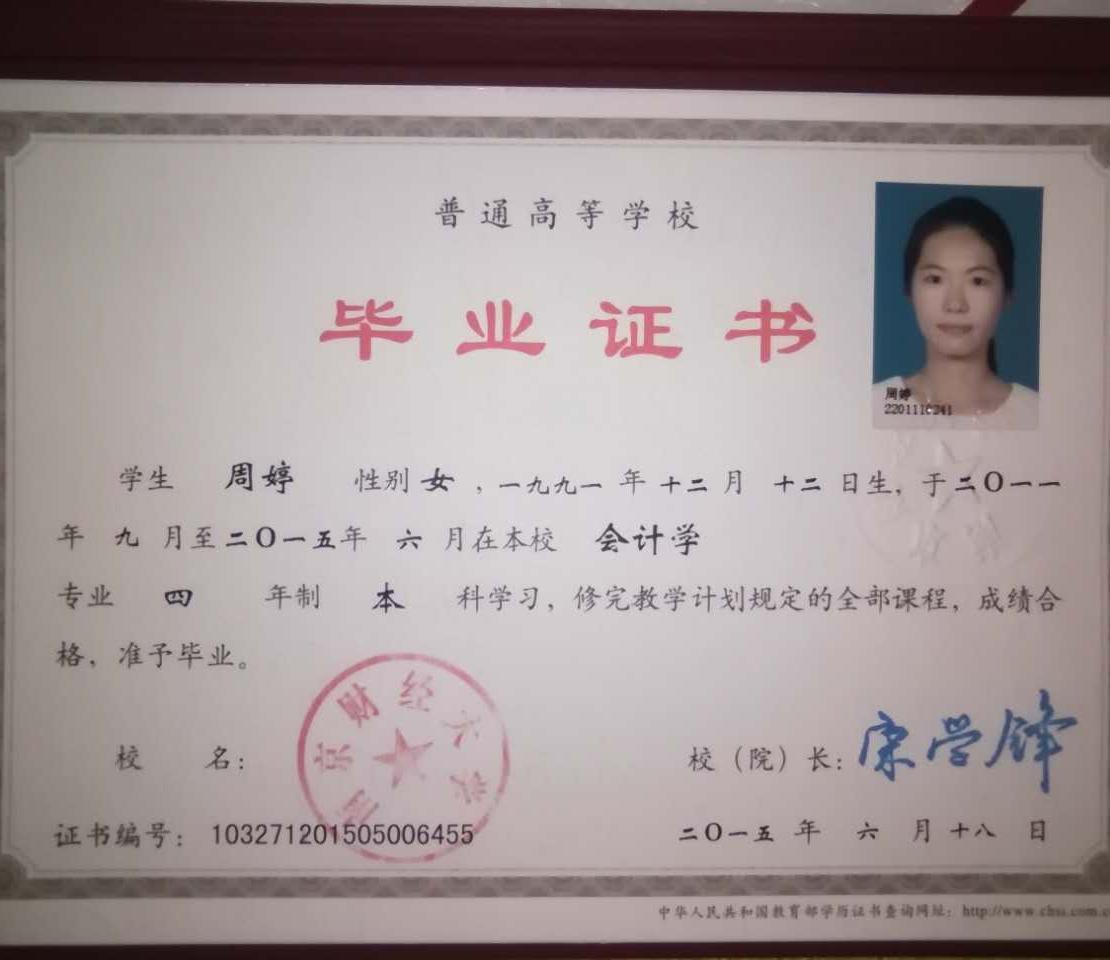 普通高等学校
毕业证书
周婷
2201110241
学生 周婷 性别 女 ,一九九一 年 十二 月 十二 日生, 于 二〇一一
年 九 月至 二〇一五 年 六 月在本校 会计学
专业 四 年制 本 科学习, 修完教学计划规定的全部课程, 成绩合
格, 准予毕业。
南京财经大学
校 名:
校（院）长: 宋学锋
证书编号: 103271201505006455
二〇一五 年 六 月 十八 日
中华人民共和国教育部学历证书查询网址: http://www.chsi.com.c